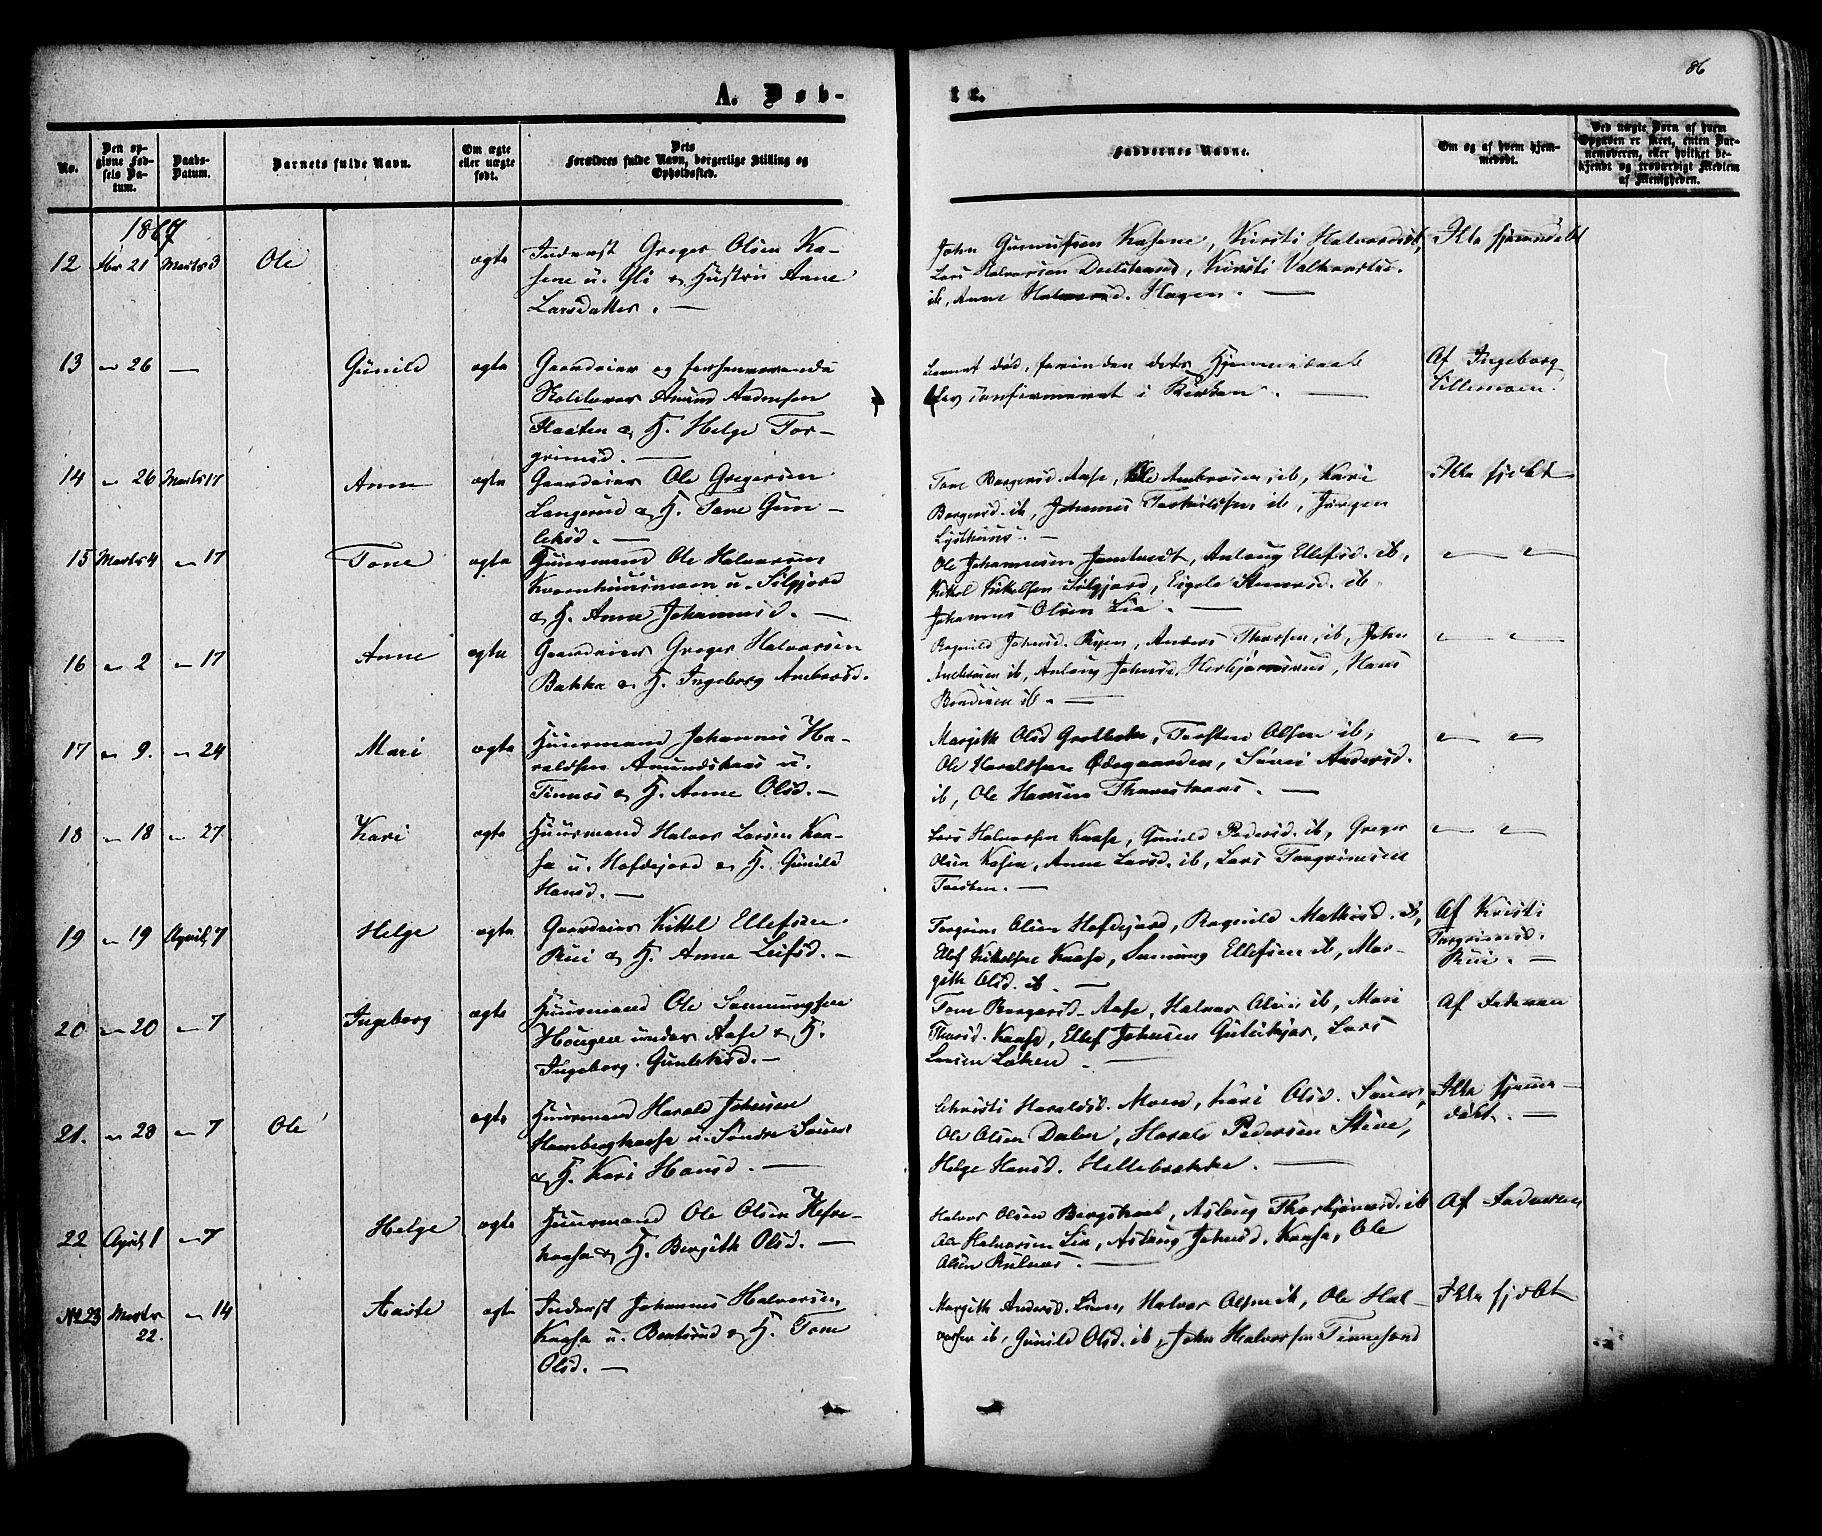 86
A. Døb-
te.
No.
Den op-
givne Fød-
sels Da-
tum.
Daabs-
Datum.
Barnets fulde Navn.
Om ægte
eller uægte
født.
Dets
Forældres fulde Navn, borgerlige Stilling og
Opholdssted.
Faddernes Navne.
Om og af hvem hjem-
medøbt.
Ved uægte Børn af hvem
Opgaven er skeet, enten Bar-
nemoderen, eller hvilket be-
kjendt og troværdigt Medlem
af Menigheden.
1867
12 Fbr 21 Marts 3 Ole ægte Inderst Greger Olsen Ka-
sene u. Gli & Hustru Anne
Larsdatter. —
John Gunnufsen Kasene, Kirsti Halvorsdt,
Lars Halvorsen Dalstrand, Kirsti
ib, Anne Halvorsd. Hagen. —
Ikke hjemdøbt
13 " 26 — Gunild ægte Gaardeier og forhenværende
Amund Andersen
Flaaten & H. Helge Tor-
grimsd. —
død, forinden dets Hjemmedaab
blev confirmeret i Kirken. —
Af Ingeborg
Lillemoen.
14 " 26 Marts 17 Anne ægte Gaardeier Ole Gregersen
Langerud & H. Tone Gun-
leksd. —
Tone Borgersd. Aase, Ole Ambrosen, ib, Kari
Borgersd. ib, Johannes Torkildsen ib, Jørgen
Lysthuus. —
Ikke hjdbt
15 Marts 4 " 17 Tone ægte Huusmand Ole Halvorsen
Kvernhuusmoen u. Silgjord
& H. Anne Johannesd. —
Ole Johannesen Jamtvedt, Anlaug Ellefsd. ib,
Kittel Kittelsen Silgjord, Eigele Steenersd. ib
Johannes Olsen Lia. —
" "
16 " 2 " 17 Anne ægte Gaardeier Greger Halvorsen
Bakka & H. Ingeborg Ambrosd.
Ragnild Johnsd. Ryen, Anders Thorsen, ib, John
Andersen ib, Anlaug Johnsd. Herbjørnsrud, Hans
ib. —
" "
17 " 9. " 24 Mari ægte Huusmand Johannes Ha-
raldsen Amundskaas u.
Tinnes & H. Anne Olsd. —
Margith Olsd Grotbæk, Torsten Olsen ib,
Ole Haraldsen Ødegaarden, Siri Andersd.
ib, Ole Hansen —
" "
18 " 18 " 27. Kari ægte Huusmand Halvor Larsen Kaa-
sa u. Hofdejord & H. Gunild
Hansd. —
Lars Halvorsen Kaase, Gunild Pedersd. ib, Greger
Olsen Kasen, Anne Larsd. ib, Lars Torgrimsen
—
" "
19 " 19 April 7 Helge ægte Gaardeier Kittel Ellefsen
Rui & H. Anne Leifsd. —
Torgrim Olsen Hofdejord, Ragnild Mathisd. ib,
Olaf Kittelsen Kaase, Sannung Ellefsen ib, Mar-
gith Olsd. ib. —
Af Kristi
Torgrimsd.
Rui. —
20 " 20 " 7 Ingeborg ægte Huusmand Ole Sannungsen
Haugen under Aase & H.
Ingeborg Gunleksd. —
Tone Borgersd. Aase, Halvor Olsen ib, Mari
Thorsd. Kaase, Ellef Johnsen Lars
Larsen Løken. —
Af Faderen
21. " 23 " 7 Ole ægte Huusmand Harald Johnsen
u. Søndre Sauer
& H. Kari Hansd. —
Christi Haraldsd. Moen, Kari Olsd. Sauer,
Ole Olsen Dalen, Harald Pedersen
Helge Hansd. Hellebrække. —
Ikke hjemme-
døbt. —
22 April 1 " 7 Helge ægte Huusmand Ole Olsen Hefre-
kaasa & H. Bergith Olsd. —
Halvor Olsen Aslaug Thorbjørnsd. ib
Ole Halvorsen Lia, Aslaug Johnsd. Kaasa, Ole
Olsen —
Af Faderen
No 23 Marts
22. " 14 Aaste ægte Inderst Johannes Halvorsen,
Kaasa u. Bentsrud & H. Tone
Olsd. —
Margith Andersd. Halvor Olsen ib, Ole Hal-
vorsen ib, Gunild Olsd. ib, John Halvorsen Tinnesand
Ikke hjdbt